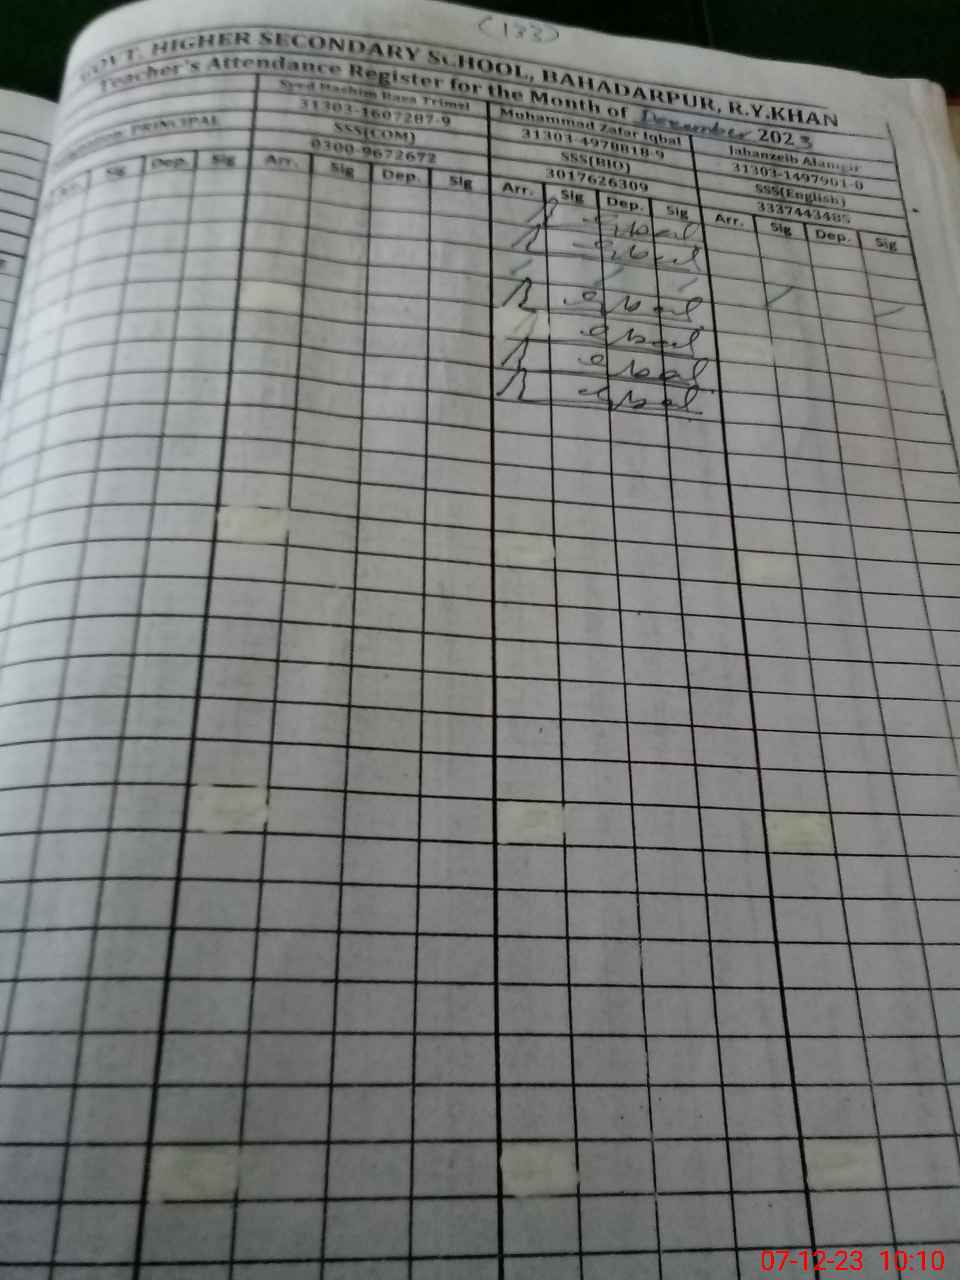 (133)
GOVT. HIGHER SECONDARY SCHOOL, BAHADARPUR, R.Y.KHAN
Teacher's Attendance Register for the Month of December 2023
PRINCIPAL
Syed Hashim Raza Trimzi
31303-1607287-9
SSS(COM)
0300-9672672
Muhammad Zafar Iqbal
31303-4978818-9
SSS(BIO)
3017626309
Jahanzeib Alamgir
31303-1497901-0
SSS(English)
3337443485
Arr. Sig Dep. Sig Arr. Sig Dep. Sig Arr. Sig Dep. Sig Arr. Sig Dep. Sig
07-12-23 10:10